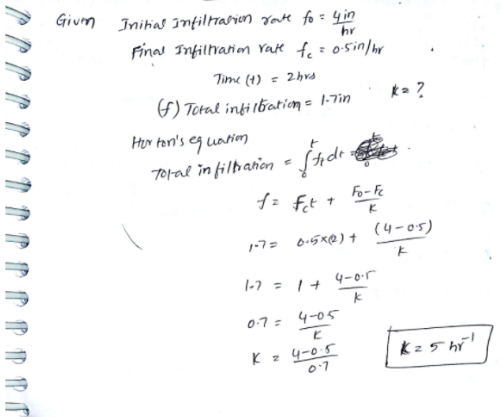 Given Initial Infiltration rate fo = 4 in/hr
Final Infiltration rate fc = 0.5 in/hr
Time (t) = 2 hrs
(f) Total infiltration = 1.7in k = ?
Horton's equation
Total infiltration = ∫₀ᵗ ft dt =
f = fct + Fo-Fc/K
1.7 = 0.5×(2) + (4-0.5)/K
1.7 = 1 + 4-0.5/K
0.7 = 4-05/K
K = 4-0.5/0.7
K = 5 hr⁻¹